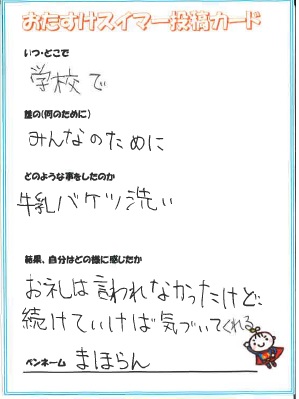 おたすけスイマー投稿カード
いつ・どこで
学校で
誰の(何のために)
みんなのために
どのような事をしたのか
牛乳バケツ洗い
結果、自分はどの様に感じたか
お礼は言われなかったけど、
続けていけば気づいてくれる
ペンネーム まほらん